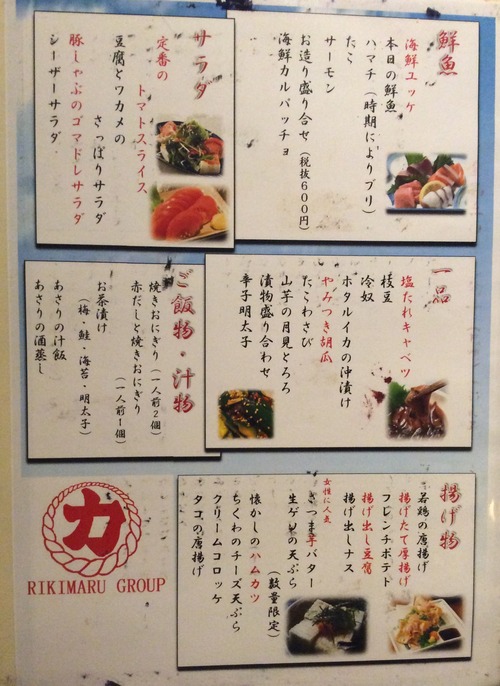 鮮魚
海鮮ユッケ
本日の鮮魚
ハマチ（時期によりブリ）
たこ
サーモン
お造り盛り合せ（税抜600円）
海鮮カルパッチョ
サラダ
定番の
トマトスライス
豆腐とワカメの
さっぱりサラダ
豚しゃぶのゴマドレサラダ
シーザーサラダ
一品
塩たれキャベツ
枝豆
冷奴
ホタルイカの沖漬け
やみつき胡瓜
たこわさび
山芋の月見とろろ
漬物盛り合わせ
辛子明太子
ご飯物・汁物
焼きおにぎり（一人前2個）
赤だしと焼きおにぎり
（一人前1個）
お茶漬け
（梅・鮭・海苔・明太子）
あさりの汁飯
あさりの酒蒸し
揚げ物
若鶏の唐揚げ
揚げたて厚揚げ
フレンチポテト
揚げ出し豆腐
揚げ出しナス
女性に人気
さつま芋バター
生ゲソの天ぷら
（数量限定）
懐かしのハムカツ
ちくわのチーズ天ぷら
クリームコロッケ
タコの唐揚げ
力
RIKIMARU GROUP